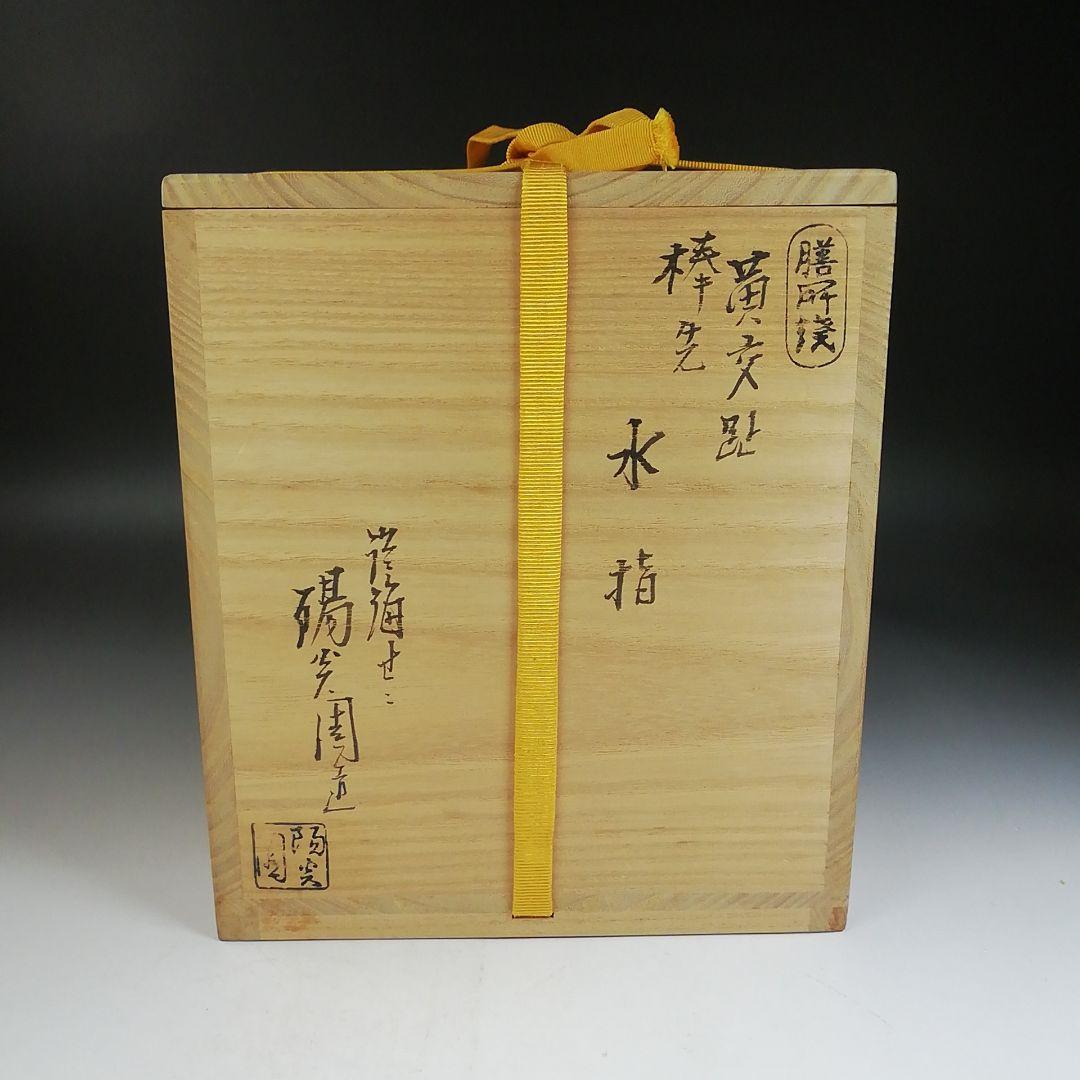 膳所焼
黄交趾
棒の先
水指
陽炎園造
陽炎園